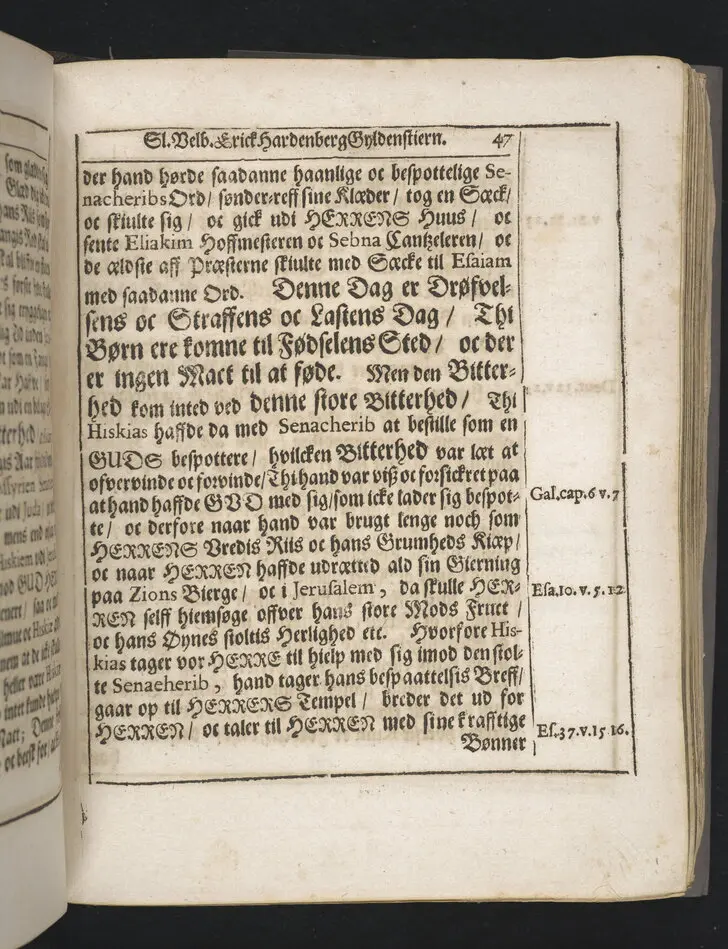 Sl. Velb. Erick Hardenberg Gyldenstiern. 47
der hand hørde saadanne haanlige oc bespottelige Se-
nacheribs Ord/ sønder-reff sine Klæder/ tog en Sæck/
oc skiulte sig/ oc gick udi HERRENS Huus/ oc
sente Eliakim Hoffmesteren oc Sebna Cantzeleren/ oc
de ældste aff Præsterne skiulte med Sæcke til Esaiam
med saadanne Ord. Denne Dag er Drøfvel-
sens oc Straffens oc Lastens Dag/ Thi
Børn ere komne til Fødselens Sted/ oc der
er ingen Mact til at føde. Men den Bitter-
hed kom inted ved denne store Bitterhed/ Thi
Hiskias haffde da med Senacherib at bestille som en
GUDS bespottere/ hvilcken Bitterhed var læt at
ofvervinde oc forvinde/ Thi hand var viß oc forsickret paa
at hand haffde GVD med sig/ som icke lader sig bespot-
te/ oc derfore naar hand var brugt lenge noch som
HERRENS Vredis Riis oc hans Grumheds Kiæp/
oc naar HERREN haffde udrætted ald sin Gierning
paa Zions Bierge/ oc i Jerusalem, da skulle HER-
REN self hiemsøge offver hans store Mods Fruct/
oc hans Øynes stoltis Herlighed etc. Hvorfore His-
kias tager vor HERRE til hielp med sig imod den stol-
te Senaeherib, hand tager hans bespaattelsis Breff/
gaar op til HERRERS Tempel/ breder det ud for
HERREN/ oc taler til HERREN med sine krafftige
Bønner
Gal. cap. 6 v. 7
Esa. 10. v. 5. 12
Es. 37. v. 15 16.